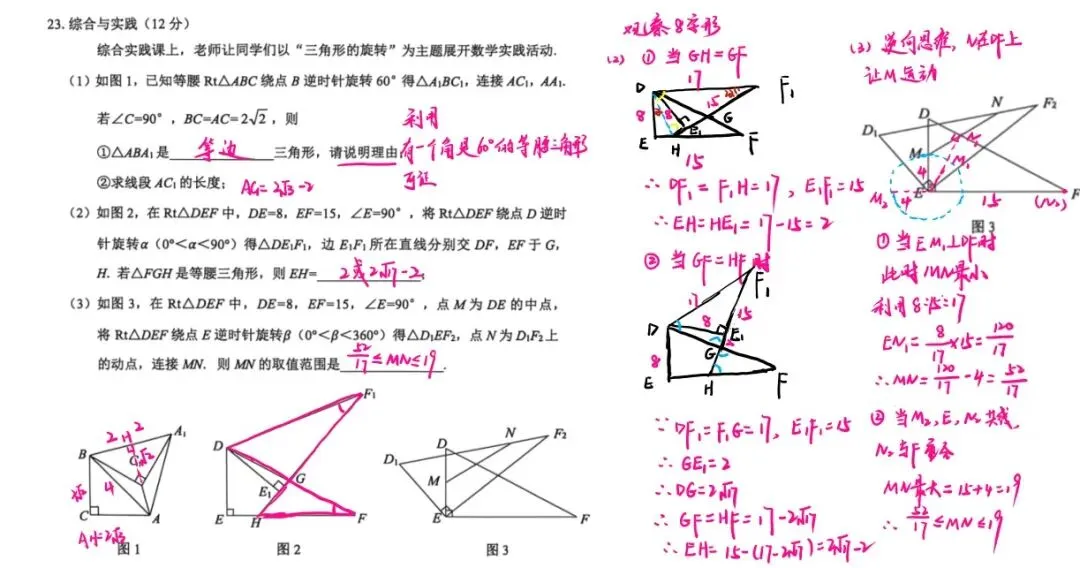 23. 综合与实践（12 分）
综合实践课上，老师让同学们以“三角形的旋转”为主题展开数学实践活动.
（1）如图 1，已知等腰 Rt△ABC 绕点 B 逆时针旋转 60° 得△A₁BC₁，连接 AC₁，AA₁.
若∠C=90°，BC=AC=2√2，则
①△ABA₁是 等边 三角形，请说明理由；
利用
有一个角是60°的等腰三角形
可证
②求线段 AC₁的长度；
AC₁=2√3-2
（2）如图 2，在 Rt△DEF 中，DE=8，EF=15，∠E=90°，将 Rt△DEF 绕点 D 逆时
针旋转α（0°<α<90°）得△DE₁F₁，边 E₁F₁所在直线分别交 DF，EF 于 G，
H. 若△FGH 是等腰三角形，则 EH= 2或2√17-2 ；
（3）如图 3，在 Rt△DEF 中，DE=8，EF=15，∠E=90°，点 M 为 DE 的中点，
将 Rt△DEF 绕点 E 逆时针旋转β（0°<β<360°）得△D₁EF₂，点 N 为 D₁F₂上
的动点，连接 MN. 则 MN 的取值范围是 52/17≤MN≤19 .
B
2
H
2
A₁
4
C₁
4
C
A
AH=2√3
图 1
F₁
D
G
E₁
E
H
F
图 2
D
N
F₂
D₁
M
E
F
图 3
观察8字形
(2) ① 当GH=GF
17
D
F₁
15
8
8
G
E₁
E
H
F
15
∴ DF₁=F₁H=17，E₁F₁=15
∴EH=HE₁=17-15=2
② 当GF=HF时
F₁
17
15
D
8
E₁
8
G
2
E
H
F
∵DF₁=F₁G=17，E₁F₁=15
∴GE₁=2
∴DG=2√17
∴GF=HF=17-2√17
∴EH=15-(17-2√17)=2√17-2
(3) 逆向思维，N在DF上
让M运动
D
N
F₂
D₁
M
N₁
4
M₁
M₂
4
E
15
F
(N₂)
图 3
① 当EM₁⊥DF时
此时MN最小
利用8:15:17
EN₁=8/17×15=120/17
∴MN=120/17-4=52/17
② 当M₂,E,N₂共线,
N₂与F重合
MN最大=15+4=19
∴ 52/17≤MN≤19